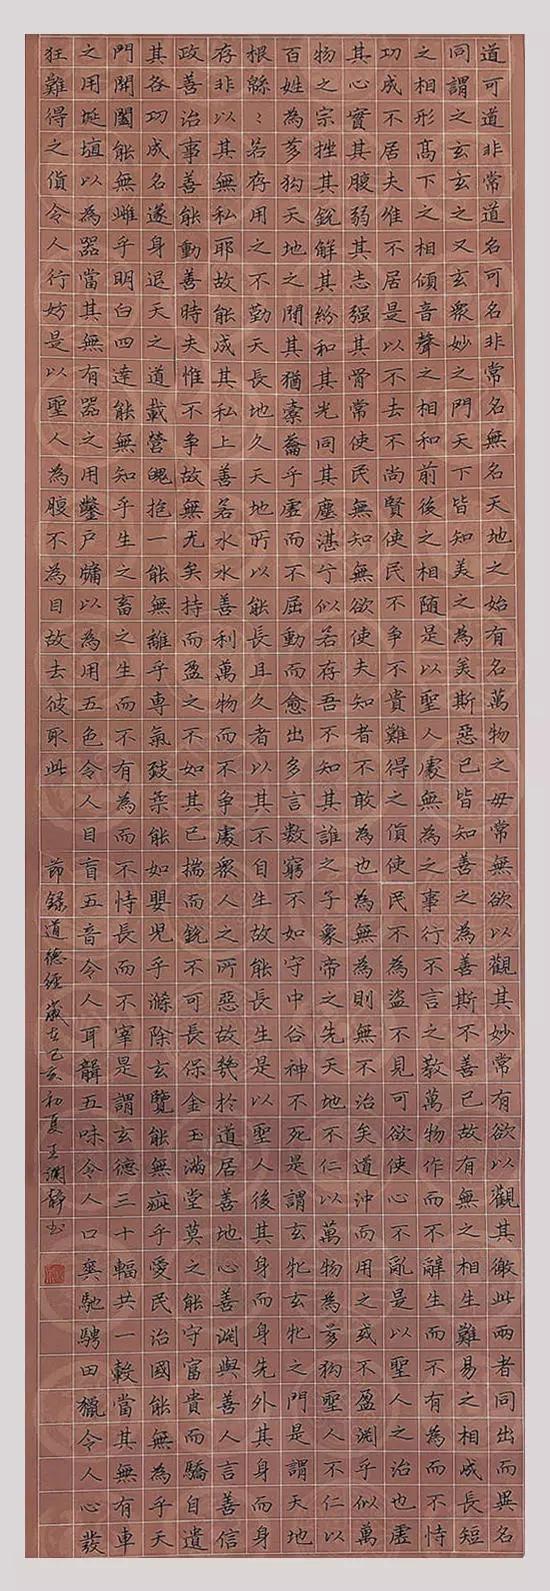 道可道非常道名可名非常名無名天地之始有名萬物之母常無欲以觀其妙常有欲以觀其徼此兩者同出而異名
同謂之玄玄之又玄衆妙之門天下皆知美之為美斯惡已皆知善之為善斯不善已故有無之相生難易之相成長短
之相形髙下之相傾音聲之相和前後之相隨是以聖人處無為之事行不言之教萬物作而不辭生而不有為而不恃
功成不居夫惟不居是以不去不尚賢使民不争不貴難得之貨使民不為盜不見可欲使心不亂是以聖人之治也虛
其心實其腹弱其志强其骨常使民無知無欲使夫知者不敢為也為無為則無不治矣道沖而用之或不盈淵乎似萬
物之宗挫其銳解其紛和其光同其塵湛兮似若存吾不知其誰之子象帝之先天地不仁以萬物為芻狗聖人不仁以
百姓為芻狗天地之間其猶橐籥乎虛而不屈動而愈出多言數窮不如守中谷神不死是謂玄牝玄牝之門是謂天地
根緜〻若存用之不勤天長地久天地所以能長且久者以其不自生故能長生是以聖人後其身而身先外其身而身
存非以其無私耶故能成其私上善若水水善利萬物而不争處衆人之所惡故幾於道居善地心善淵與善人言善信
政善治事善能動善時夫惟不争故無尤矣持而盈之不如其已揣而銳不可長保金玉滿堂莫之能守富貴而驕自遺
其咎功成名遂身退天之道載營魄抱一能無離乎専氣致柔能如嬰兒乎滌除玄覽能無疵乎愛民治國能無為乎天
門開闔能無雌乎明白四達能無知乎生之畜之生而不有為而不恃長而不宰是謂玄德三十輻共一轂當其無有車
之用埏埴以為器當其無有器之用鑿戶牖以為用五色令人目盲五音令人耳聾五味令人口爽馳騁田獵令人心發
狂難得之貨令人行妨是以聖人為腹不為目故去彼取此
節録道德經歲在己亥初夏王靜书